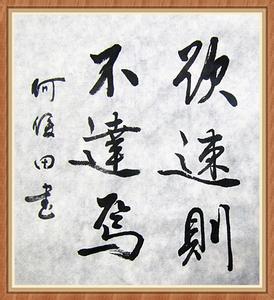 欲速則
不達焉
何俊田書